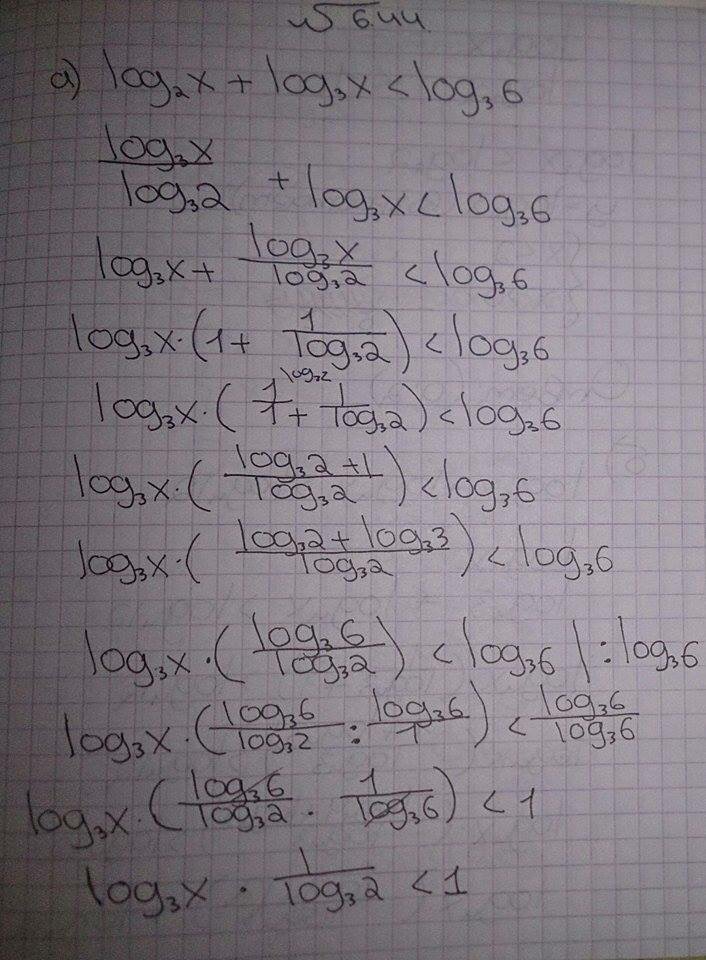 √644
a) log₂x + log₃x < log₃6
log₃x/log₃2 + log₃x < log₃6
log₃x + log₃x/log₃2 < log₃6
log₃x·(1 + 1/log₃2) < log₃6
log₃x·(1/1 ^log₃2 + 1/log₃2) < log₃6
log₃x·((log₃2 + 1)/log₃2) < log₃6
log₃x·((log₃2 + log₃3)/log₃2) < log₃6
log₃x·(log₃6/log₃2) < log₃6 |:log₃6
log₃x·(log₃6/log₃2 : log₃6/1) < log₃6/log₃6
log₃x·(log₃6/log₃2 · 1/log₃6) < 1
log₃x · 1/log₃2 < 1